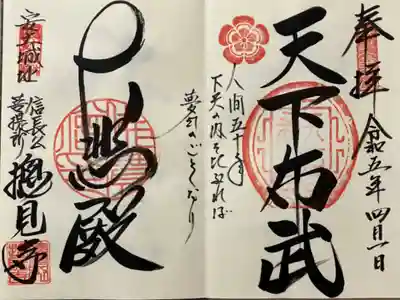 奉拝
令和五年四月一日
天下布武
人間五十年
下天の内をくらぶれば
夢幻のごとくなり
殿
安土城址
信長公
菩提所
摠見寺